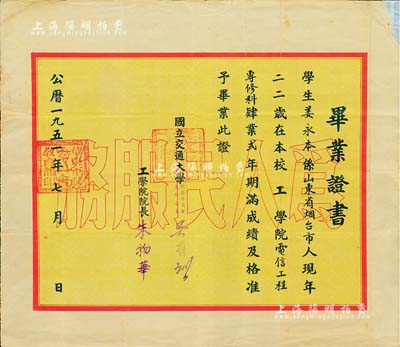 上海陽明拍賣
畢業證書
學生姜永本係山東省烟台市人現年
二二歲在本校工學院電信工程
專修科肄業弍年期滿成績及格准
予畢業此證
國立交通大學
工學院院長 朱物華
公曆一九五一年七月 日
為人民服務
上海陽明拍賣
上海陽明拍賣